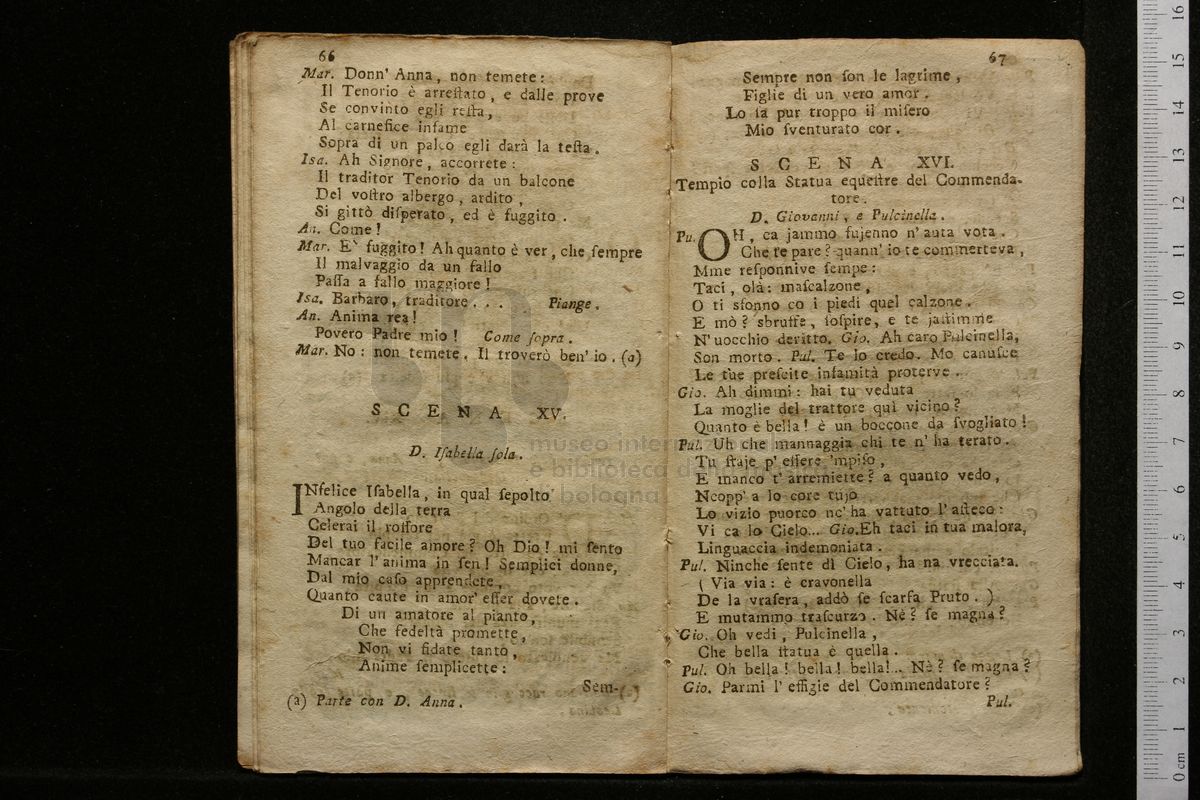 66
Mar. Donn' Anna, non temete:
Il Tenorio è arreſtato, e dalle prove
Se convinto egli reſta,
Al carnefice infame
Sopra di un palco egli darà la teſta.
Isa. Ah Signore, accorrete:
Il traditor Tenorio da un balcone
Del voſtro albergo, ardito,
Si gittò diſperato, ed è fuggito.
An. Come!
Mar. E' fuggito! Ah quanto è ver, che ſempre
Il malvaggio da un fallo
Paſſa a fallo maggiore!
Isa. Barbaro, traditore... Piange.
An. Anima rea!
Povero Padre mio! Come ſopra.
Mar. No: non temete. Il troverò ben' io. (a)
SCENA XV.
D. Iſabella ſola.
INfelice Iſabella, in qual ſepolto
Angolo della terra
Celerai il roſſore
Del tuo facile amore? Oh Dio! mi ſento
Mancar l'anima in ſen! Semplici donne,
Dal mio caſo apprendete,
Quanto caute in amor' eſſer dovete.
Di un amatore al pianto,
Che fedeltà promette,
Non vi fidate tanto,
Anime ſemplicette:
Sem-
(a) Parte con D. Anna.
67
Sempre non ſon le lagrime,
Figlie di un vero amor.
Lo ſa pur troppo il miſero
Mio ſventurato cor.
SCENA XVI.
Tempio colla Statua equeſtre del Commenda-
tore.
D. Giovanni, e Pulcinella.
Pu. OH, ca jammo fujenno n'auta vota.
Che te pare? quann' io te commerteva,
Mme reſponnive ſempe:
Taci, olà: maſcalzone,
O ti sfonno co i piedi quel calzone.
E mò? sbruffe, ſoſpire, e te jaſtimme
N'uocchio deritto. Gio. Ah caro Pulcinella,
Son morto. Pul. Te lo credo. Mo canuſce
Le tue preſcite infamità proterve..
Gio. Ah dimmi: hai tu veduta
La moglie del trattore quì vicino?
Quanto è bella! è un boccone da ſvogliato!
Pul. Uh che mannaggia chi te n' ha terato.
Tu ſtaje p' eſſere 'mpiſo,
E manco t' arremiette? a quanto vedo,
Ncopp' a lo core tujo
Lo vizio puorco nc' ha vattuto l' aſteco:
Vi ca lo Cielo... Gio. Eh taci in tua malora,
Linguaccia indemoniata.
Pul. Ninche ſente dì Cielo, ha na vrecciata.
(Via via: è cravonella
De la vraſera, addò ſe ſcarfa Pruto.)
E mutammo traſcurzo. Nè? ſe magna?
Gio. Oh vedi, Pulcinella,
Che bella ſtatua è quella.
Pul. Oh bella! bella! bella!.. Nè? ſe magna?
Gio. Parmi l' effigie del Commendatore?
Pul.
museo
e biblioteca
bologna
0 cm 1 2 3 4 5 6 7 8 9 10 11 12 13 14 15 16